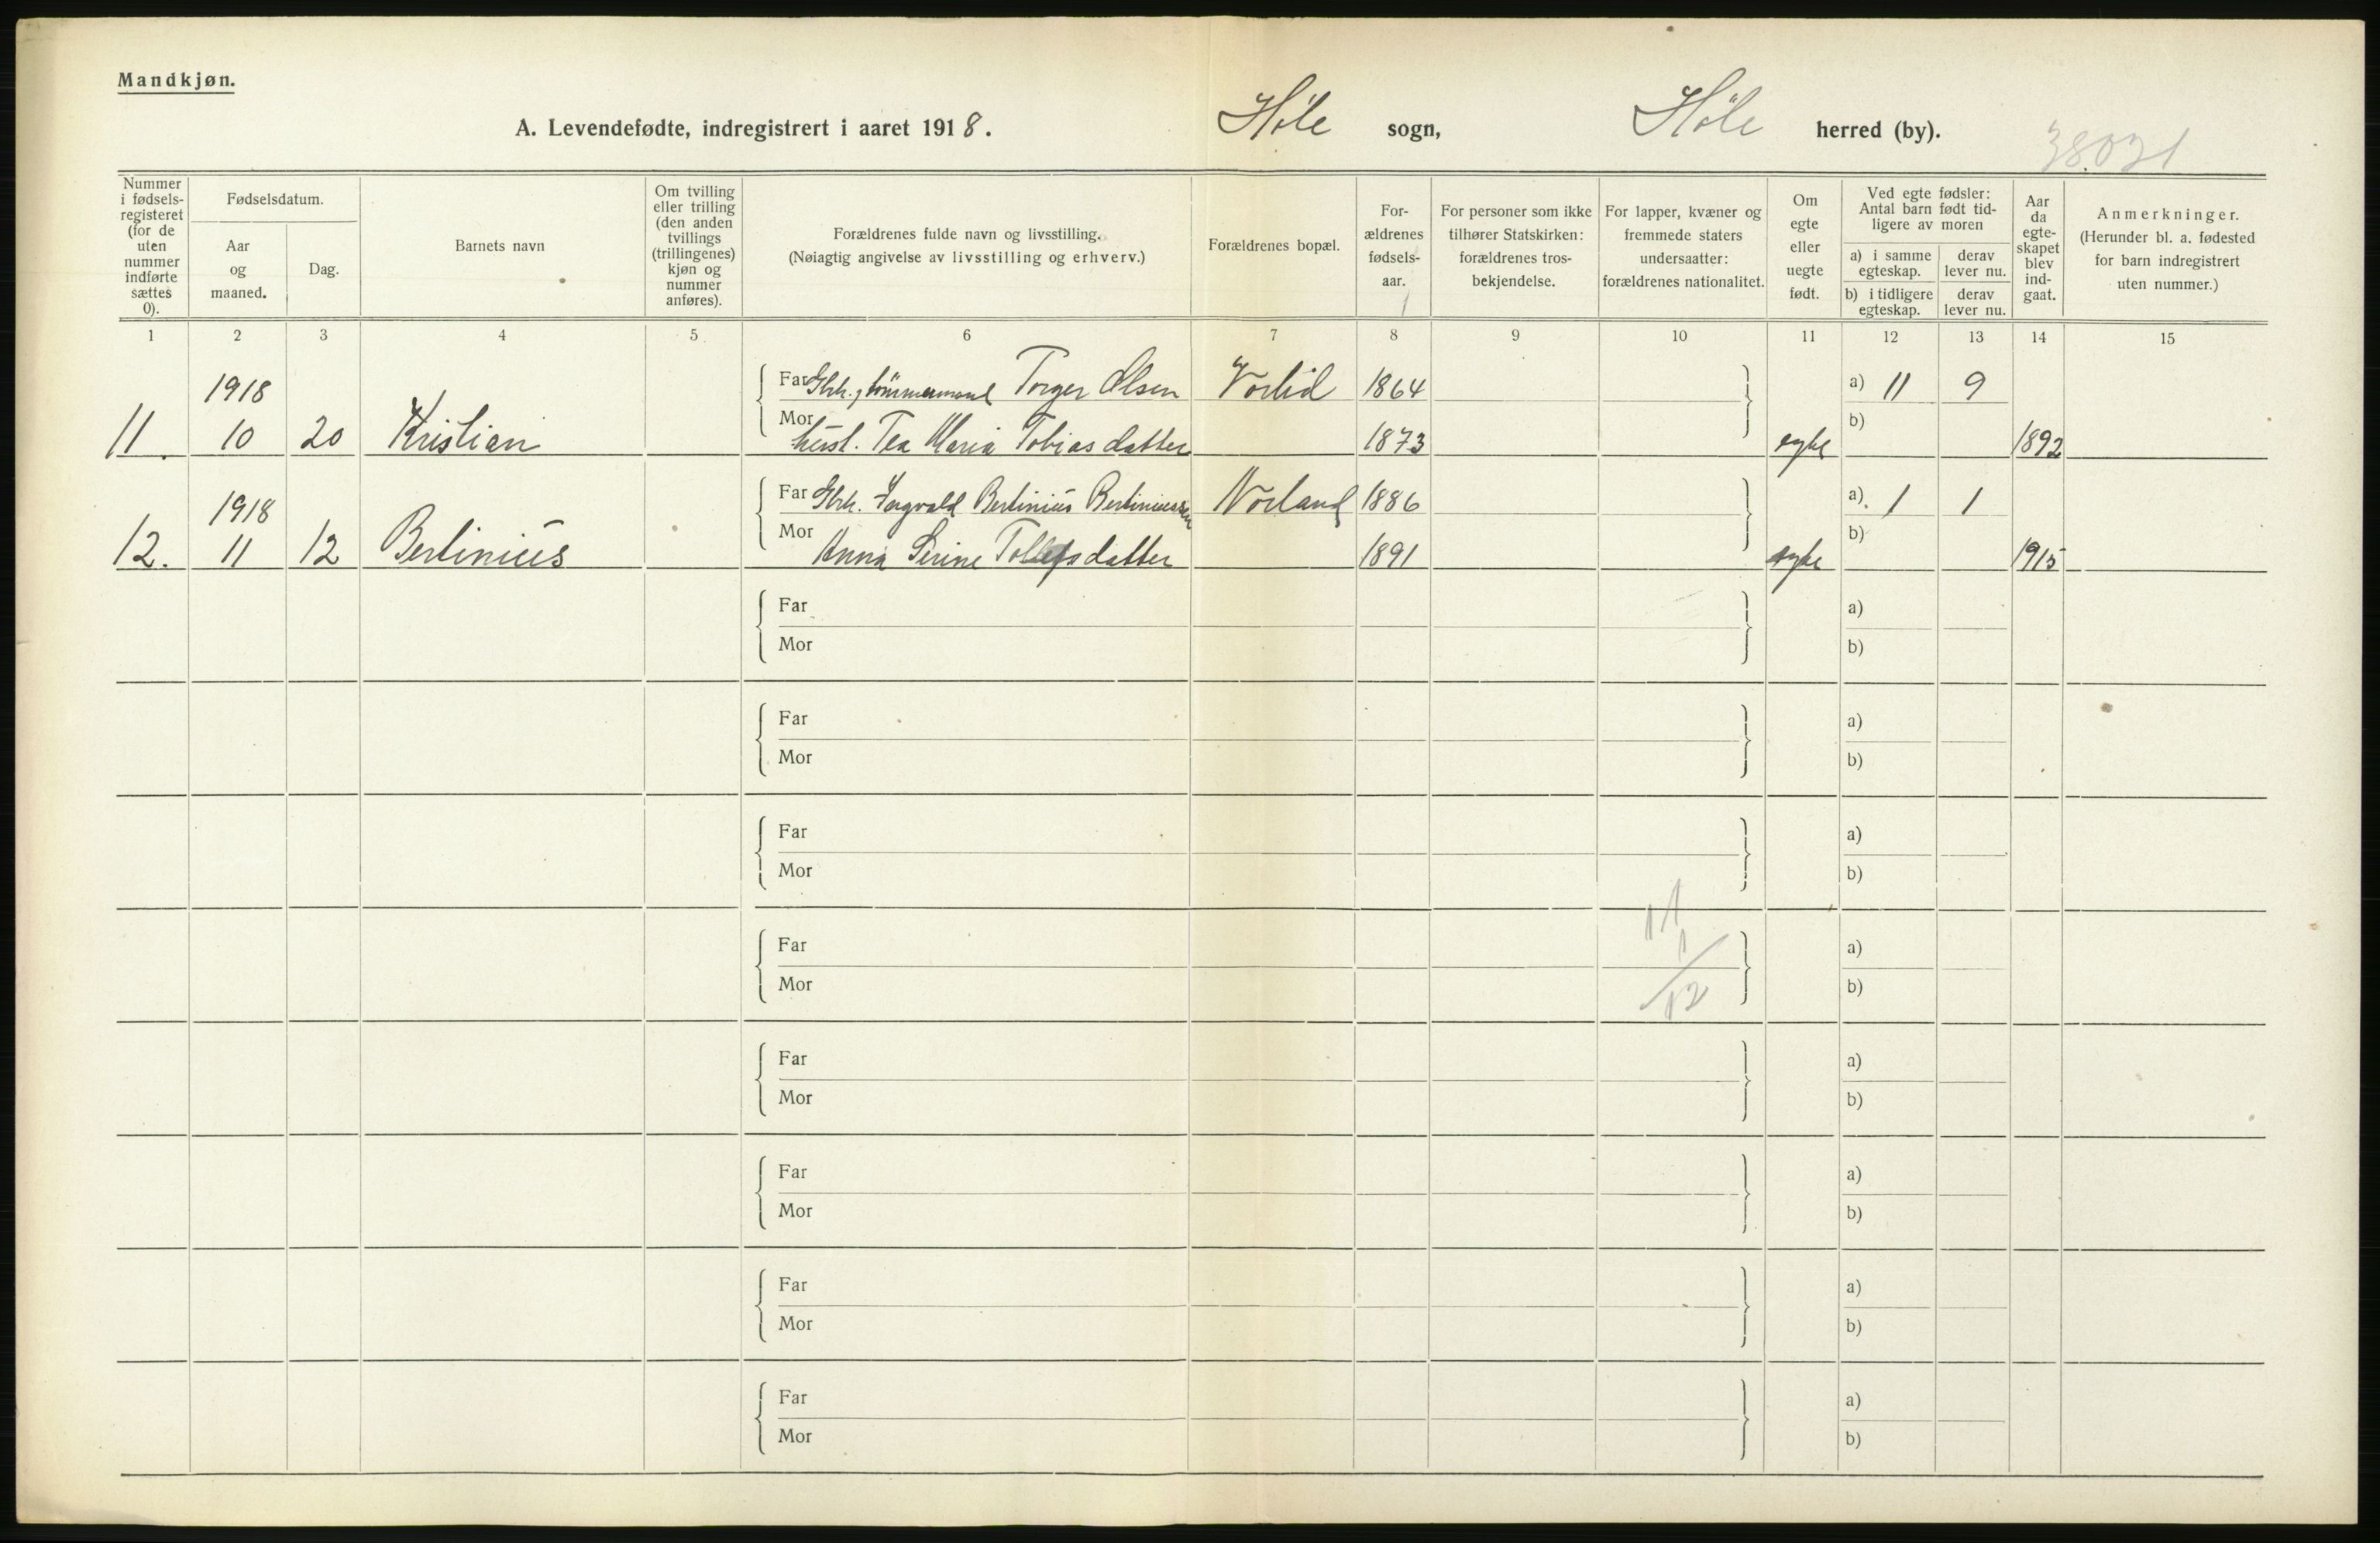 Mandkjøn.
A. Levendefødte, indregistrert i aaret 1918. Høle sogn, Høle herred (by).
38.031
Nummer i fødsels-registeret (for de uten nummer indførte sættes 0).
Fødselsdatum.
Aar og maaned.
Dag.
Barnets navn
Om tvilling eller trilling (den anden tvillings (trillingenes) kjøn og nummer anføres).
Forældrenes fulde navn og livsstilling.
(Nøiagtig angivelse av livsstilling og erhverv.)
Forældrenes bopæl.
For-ældrenes fødsels-aar.
For personer som ikke tilhører Statskirken: forældrenes tros-bekjendelse.
For lapper, kvæner og fremmede staters undersaatter: forældrenes nationalitet.
Om egte eller uegte født.
Ved egte fødsler: Antal barn født tid-ligere av moren
a) i samme egteskap.
derav lever nu.
b) i tidligere egteskap.
derav lever nu.
Aar da egte-skapet blev ind-gaat.
Anmerkninger.
(Herunder bl. a. fødested for barn indregistrert uten nummer.)
1 2 3 4 5 6 7 8 9 10 11 12 13 14 15
1918 Far Gbr., tömmermand Torger Olsen Vorlid 1864 a) 11 9
11. 10 20 Kristian Mor hust. Tea Maria Tobiasdatter 1873 egte b) 1892
1918 Far Gbr. Ingvald Bertinius Bertiniussen Norland 1886 a) 1 1
12. 11 12 Bertinius Mor Anna Serine Tollefsdatter 1891 egte b) 1915
Far a)
Mor b)
Far a)
Mor b)
Far a)
Mor b)
11
1
Far a)
Mor 12 b)
Far a)
Mor b)
Far a)
Mor b)
Far a)
Mor b)
Far a)
Mor b)